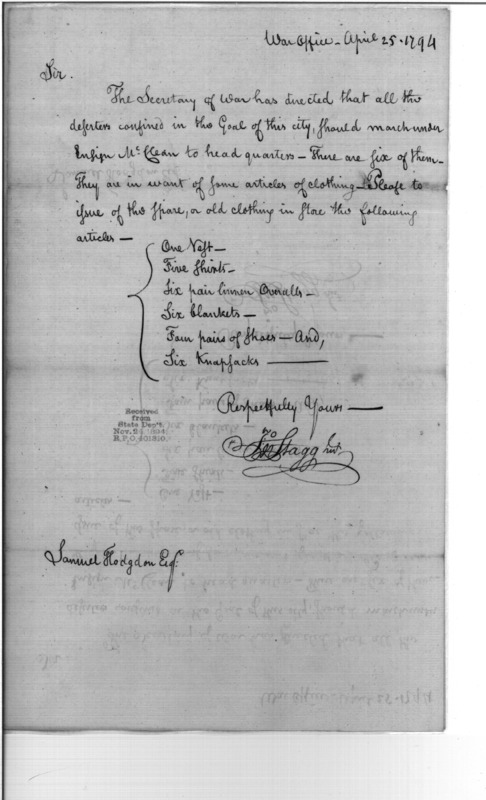 War Office - April 25. 1794
Sir.
The Secretary of War has directed that all the
deserters confined in the Goal of this city, should march under
Ensign Mc.Clean to head quarters - There are six of them -
They are in want of some articles of clothing - Please to
issue of the spare, or old clothing in store the following
articles -
One Vest -
Five Shirts -
Six pair linnen Overalls -
Six blankets -
Four pairs of Shoes - And,
Six Knapsacks
Respectfully Yours
Jno Stagg Junr.
Received
from
State Dep't.
Nov. 24, 1894
R.P.O. 401810.
Samuel Hodgdon Esqr.